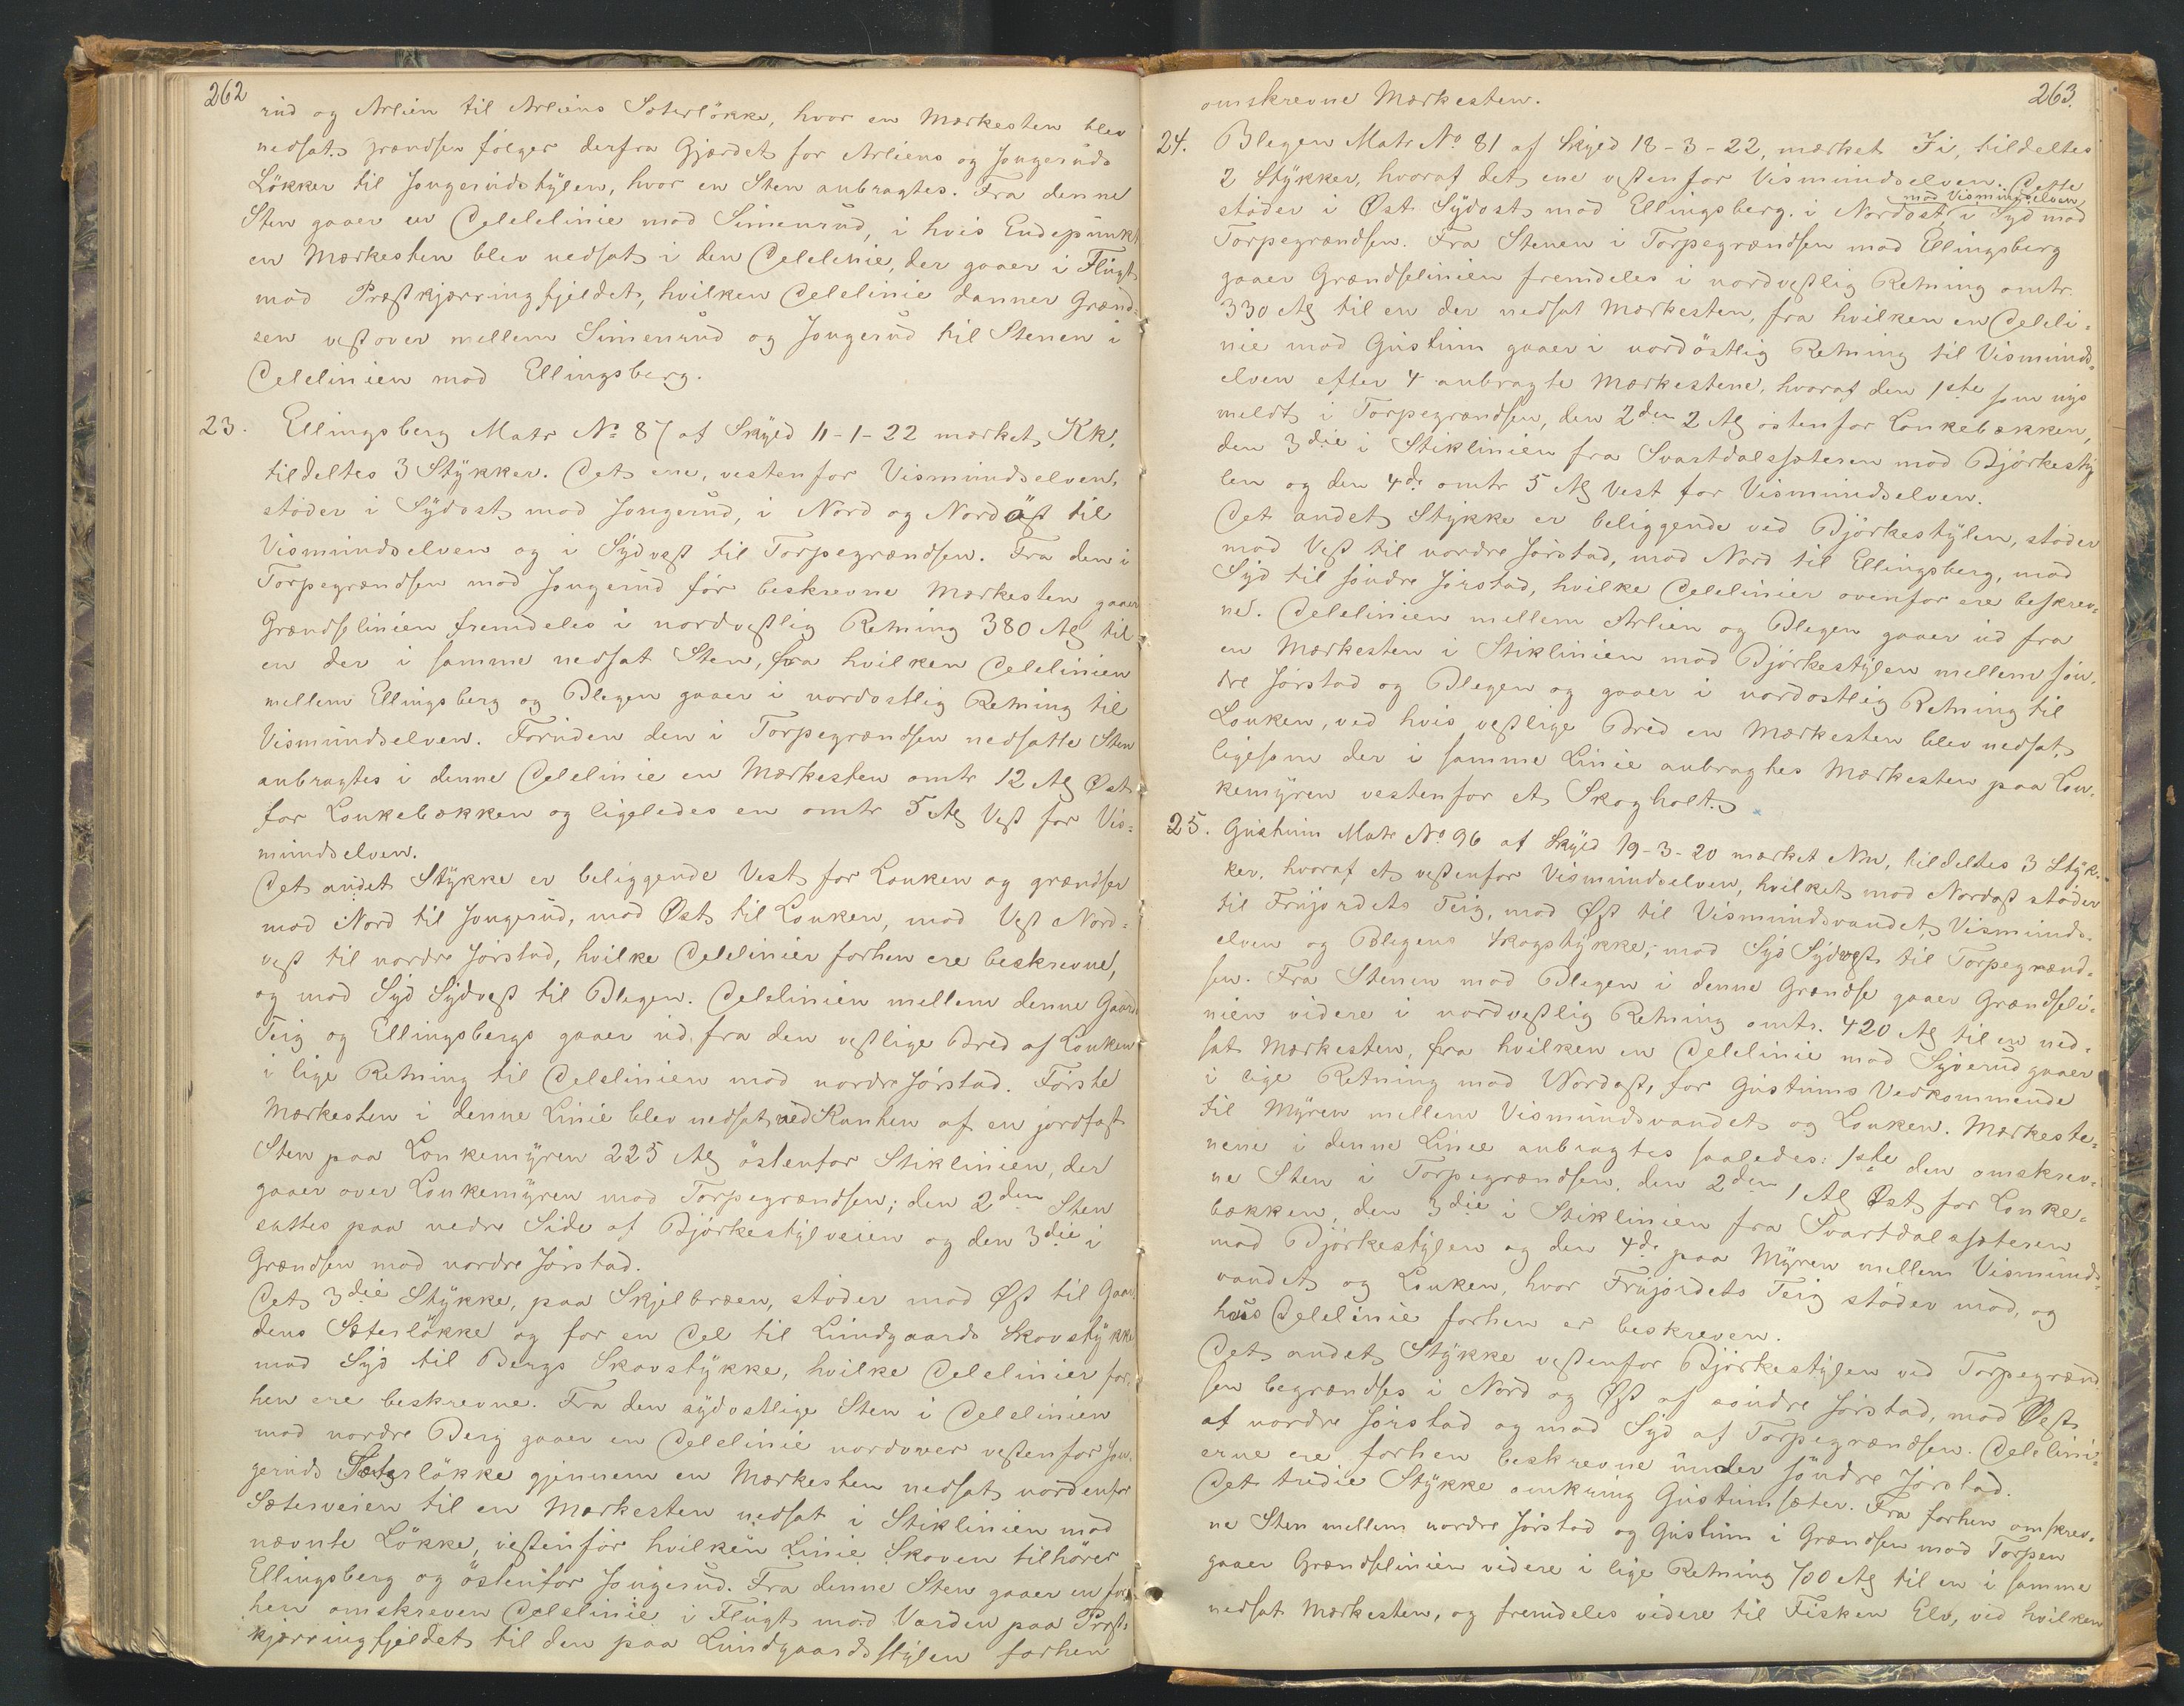 262
rud og Arlien til Arliens Sæterløkke, hvor en Mærkesten blev
nedsat. Grændsen følger derfra Gjærdet for Arliens og Jongeruds
Løkker til Jongerudstylen, hvor en Sten anbragtes. Fra denne
Sten gaaer en Delelinie mod Simenrud, i hvis Endepunkt
en Mærkesten blev nedsat i den Delelinie, der gaaer i Flugt
mod Præstkjærringfjeldet, hvilken Delelinie danner Grænd-
sen vestover mellem Simenrud og Jongerud til Stenen i
Delelinien mod Ellingsberg.
23. Ellingsberg Matr No 87 af Skyld 11-1-22 mærket Kk,
tildeltes 3 Stykker. Det ene, vestenfor Vismundselven,
støder i Sydost mod Jongerud, i Nord og Nordøst til
Vismundselven og i Sydvest til Torpegrændsen. Fra den i
Torpegrændsen mod Jongerud før beskrevne Mærkesten gaaer
Grændselinien fremdeles i nordvestlig Retning 380 Al til
en der i samme nedsat Sten, fra hvilken Delelinien
mellem Ellingsberg og Blegen gaaer i nordostlig Retning til
Vismundselven. Foruden den i Torpegrændsen nedsatte Sten
anbragtes i denne Delelinie en Mærkesten omtr 12 Al Øst
for Lonkebækken og ligeledes en omtr 5 Al Vest for Vis-
mundselven.
Det andet Stykke er beliggende Vest for Lonken og grændser
mod Nord til Jongerud, mod Øst til Lonken, mod Vest Nord-
vest til nordre Jørstad, hvilke Delelinier forhen ere beskrevne,
og mod Syd Sydvest til Blegen. Delelinien mellem denne Gaards
Teig og Ellingsbergs gaaer ud fra den vestlige Bred af Lonken
i lige Retning til Delelinien mod nordre Jørstad. Første
Mærkesten i denne Linie blev nedsat ved Kanten af en jordfast
Sten paa Lonkemyren 225 Al østenfor Stiklinien, der
gaaer over Lonkemyren mod Torpegrændsen; den 2den Sten
sattes paa nedre Side af Bjørkestylveien og den 3die i
Grændsen mod nordre Jørstad.
Det 3die Stykke, paa Skjelbræen, støder mod Øst til Gaar-
dens Sæterløkke og for en Del til Lundgaards Skovstykke
mod Syd til Bergs Skovstykke, hvilke Delelinier for-
hen ere beskrevne. Fra den sydostlige Sten i Delelinien
mod nordre Berg gaaer en Delelinie nordover vestenfor Jon-
geruds Sæterløkke gjennem en Mærkesten nedsat nordenfor
Sæterveien til en Mærkesten nedsat i Stiklinien mod
nævnte Løkke, vestenfor hvilken Linie Skoven tilhører
Ellingsberg og østenfor Jongerud. Fra denne Sten gaaer en for-
hen omskreven Delelinie i Flugt mod Varden paa Præst-
kjærringfjeldet til den paa Lundgaardsstylen forhen
263.
omskrevne Mærkesten.
24. Blegen Matr No 81 af Skyld 18-3-22, mærket Ii, tildeltes
2 Stykker, hvoraf det ene vestenfor Vismundselven. Dette
mod Vismundselven,
støder i Øst Sydost mod Ellingsberg. i Nordost i Syd mod
Torpegrændsen. Fra Stenen i Torpegrændsen mod Ellingsberg
gaaer Grændselinien fremdeles i nordvestlig Retning omtr.
330 Al til en der nedsat Mærkesten, fra hvilken en Deleli-
nie mod Gustum gaaer i nordøstlig Retning til Vismunds-
elven efter 4 anbragte Mærkestene, hvoraf den 1ste som nys
meldt i Torpegrændsen, den 2den 2 Al østenfor Lonkebækken,
den 3die i Stiklinien fra Svartdalssæteren mod Bjørkesty-
len og den 4de omtr 5 Al Vest for Vismundselven.
Det andet Stykke er beliggende ved Bjørkestylen, støder
mod Vest til nordre Jørstad, mod Nord til Ellingsberg, mod
Syd til søndre Jørstad, hvilke Delelinier ovenfor ere beskrev-
ne. Delelinien mellem Arlien og Blegen gaaer ud fra
en Mærkesten i Stiklinien mod Bjørkestylen mellem søn-
dre Jørstad og Blegen og gaaer i nordostlig Retning til
Lonken, ved hvis vestlige Bred en Mærkesten blev nedsat,
ligesom der i samme Linie anbragtes Mærkesten paa Lon-
kemyren vestenfor et Skogholt.
25. Gustum Matr No 96 af Skyld 19-3-20 mærket Nn, tildeltes 3 Styk-
ker, hvoraf et vestenfor Vismundselven, hvilket mod Nordost støder
til Frujordets Teig, mod Øst til Vismundsvandet, Vismunds-
elven og Blegens Skogstykke, mod Syd Sydvest til Torpegrænd-
sen. Fra Stenen mod Blegen i denne Grændse gaaer Grændseli-
nien videre i nordvestlig Retning omtr. 420 Al til en ned-
sat Mærkesten, fra hvilken en Delelinie mod Syverud gaaer
i lige Retning mod Nordost, for Gustums Vedkommende
til Myren mellem Vismundsvandet og Lonken. Mærkeste-
nene i denne Linie anbragtes saaledes: 1ste den omskrev-
ne Sten i Torpegrændsen, den 2den 1 Al Øst for Lonke-
bækken, den 3die i Stiklinien fra Svartdalssæteren
mod Bjørkestylen og den 4de paa Myren mellem Vismunds-
vandet og Lonken, hvor Frujordets Teig støder mod, og
hvis Delelinie forhen er beskreven.
Det andet Stykke vestenfor Bjørkestylen ved Torpegrænd-
sen begrændses i Nord og Øst af søndre Jørstad, mod Vest
af nordre Jørstad og mod Syd af Torpegrændsen. Delelini-
erne ere forhen beskrevne under søndre Jørstad.
Det tredie Stykke omkring Gustumsæter. Fra forhen omskrev-
ne Sten mellem nordre Jørstad og Gustum i Grændsen mod Torpen
gaaer Grændselinien videre i lige Retning 700 Al til en i samme
nedsat Mærkesten, og fremdeles videre til Fisken Elv, ved hvilken